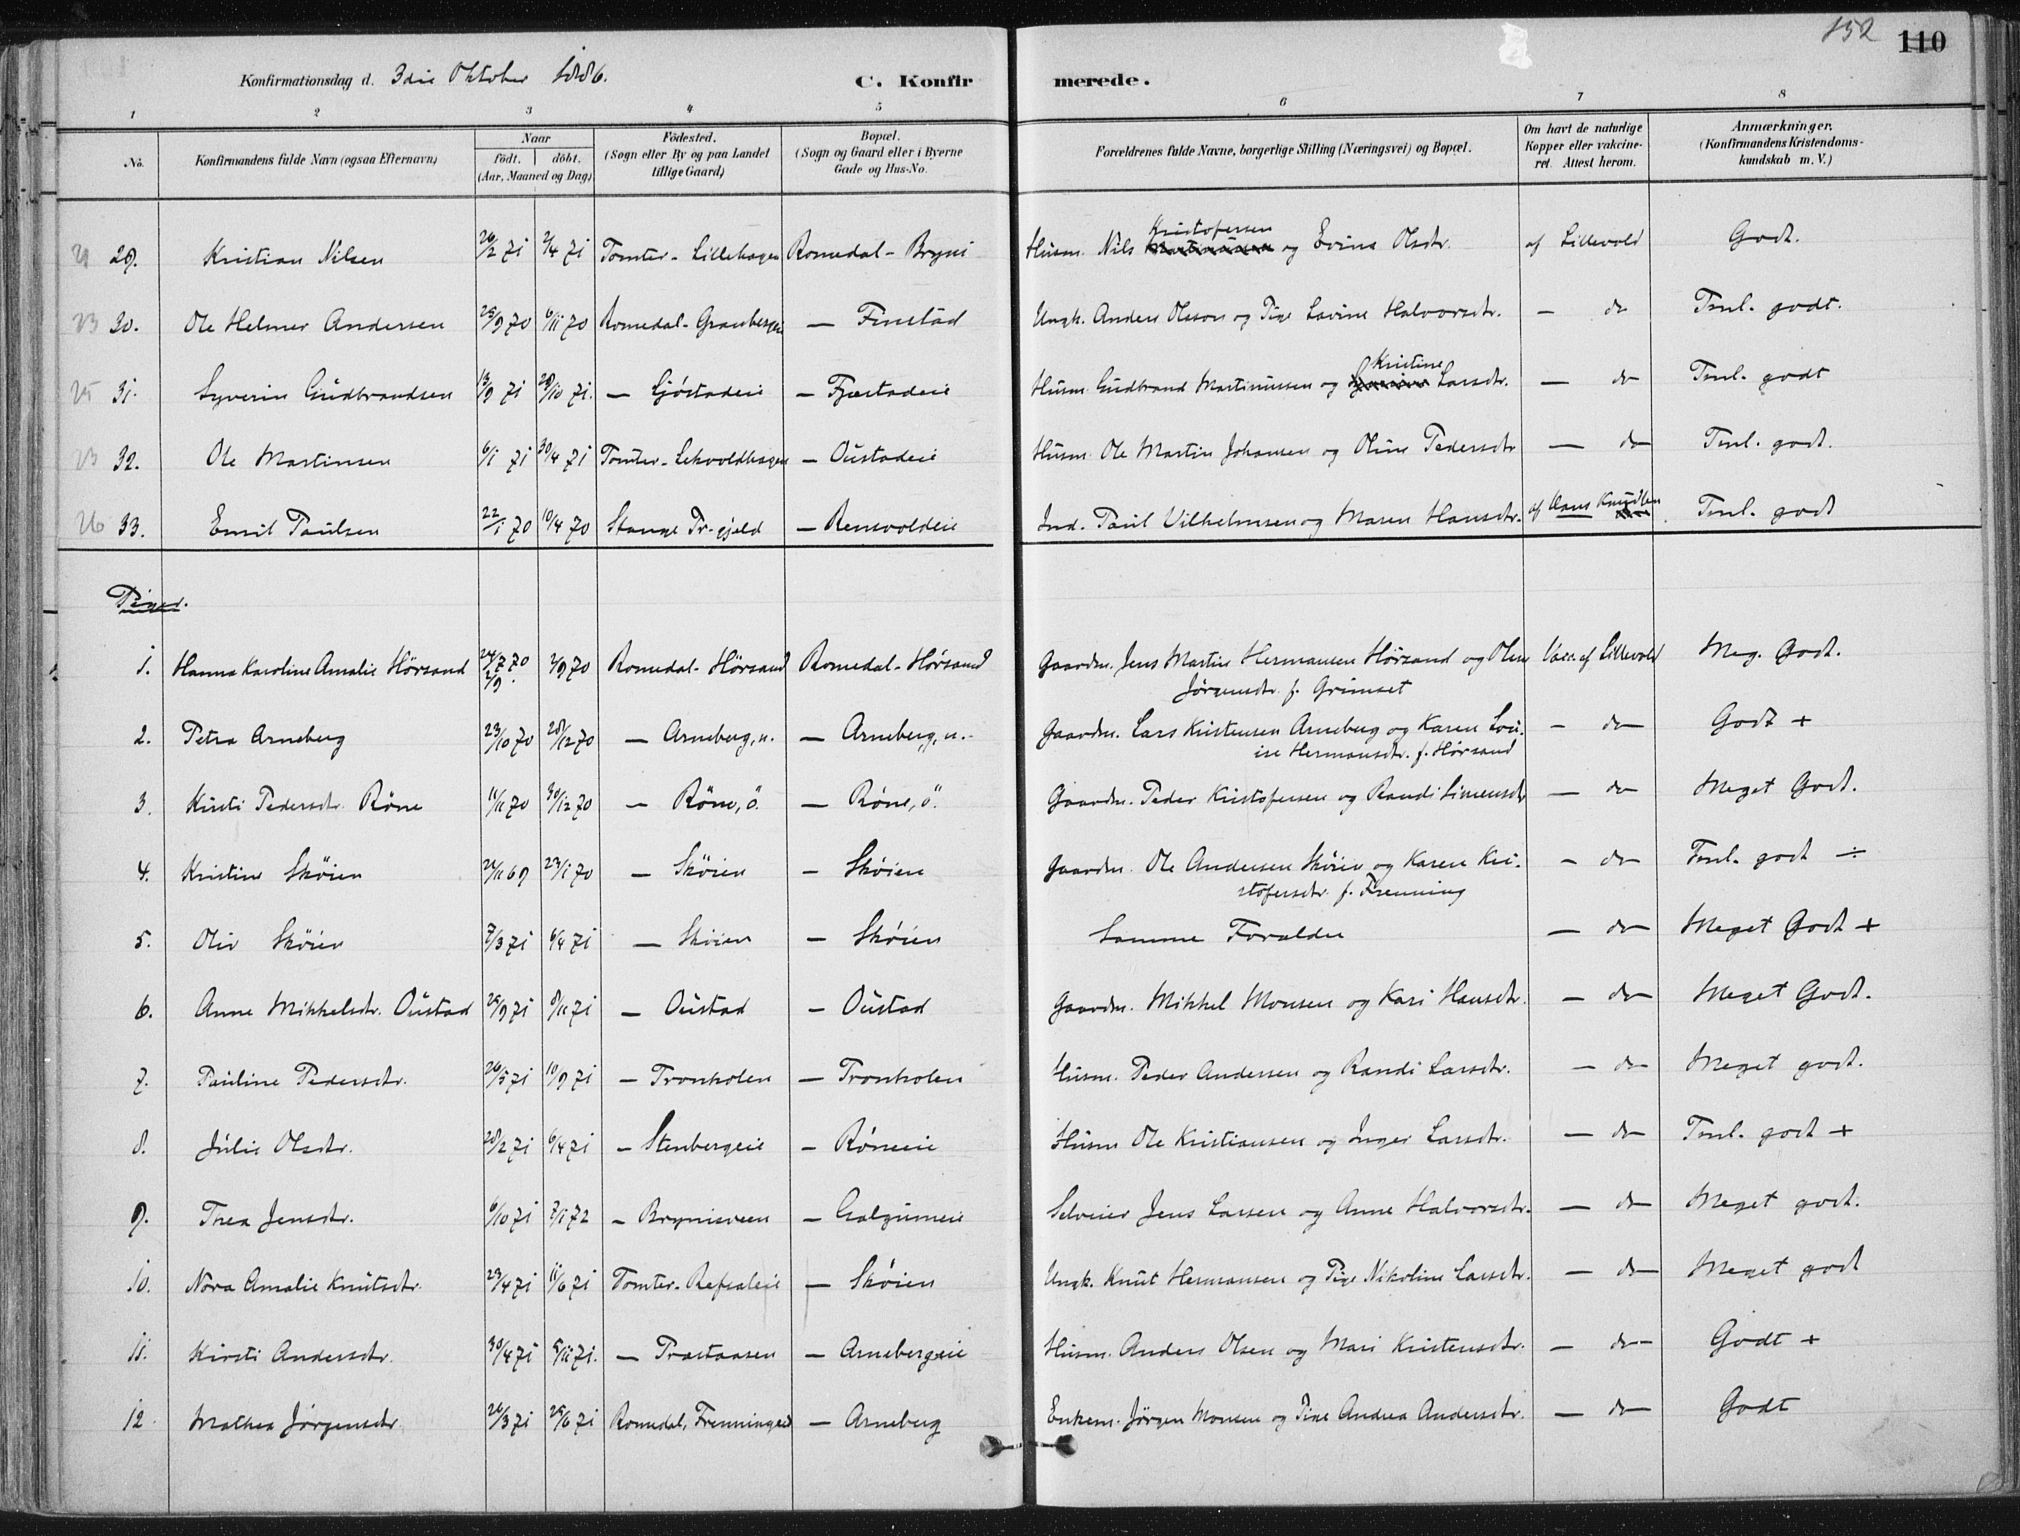 152 110
Konfirmationsdag d. 3die Oktober 1886. C. Konfirmerede.
1 2 3 4 5 6 7 8
No. Konfirmandens fulde Navn (ogsaa Efternavn) Naar født. døbt. (Aar, Maaned og Dag) Fødested. (Sogn eller By og paa Landet tillige Gaard) Bopæl. (Sogn og Gaard eller i Byerne Gade og Hus-No. Forældrenes fulde Navne, borgerlige Stilling (Næringsvei) og Bopæl. Om havt de naturlige Kopper eller vakcineret. Attest herom. Anmærkninger. (Konfirmandens Kristendomskundskab m. V.)
29. Kristian Nilsen 26/2 71 2/4 71 Tomter - Lillehagen Romedal - Bryni Husm. Nils Kristofersen og Evine Olsdtr. af Lillevold Godt.
23 30. Ole Helmer Andersen 25/9 70 6/11 70 Romedal - Granbergeie — Finstad Ungk. Anders Olsson og Pige Lovine Halvorsdtr. — do Tml. godt.
25 31. Syverin Gudbrandsen 13/9 71 28/10 71. — Gjøstadeie — Fjæstadeie Husm. Gudbrand Martinussen og Kristine Larsdtr. — do Tml. godt
23 32. Ole Martinsen 6/1 71 30/4 71 Tomter - Lekvoldhagen — Oustadeie Husm. Ole Martin Johansen og Oline Pedersdtr — do Tml. godt.
26 33. Emil Paulsen 22/1 70 10/4 70 Stange Pr-gjeld — Rensvoldeie Ind. Paul Vilhelmsen og Maren Hansdtr. af Hans Knudsen Tml. godt
Piger.
1. Hanna Karoline Amalie Hørsand 24/7 70 2/9 70 Romedal - Hørsand Romedal - Hørsand Gaardm. Jens Martin Hermansen Hørsand og Oline Vacc. af Lillevold Meg. Godt.
2/9. Jørgensdtr. f. Grimset
2. Petra Arneberg 23/10 70 28/12 70 — Arneberg, n. — Arneberg, n. Gaardm. Lars Kristensen Arneberg og Karen Lou- — do Godt +
ise Hermansdtr. f. Hørsand
3. Kirsti Pedersdtr. Røne 11/11 70 30/12 70 — Røne, ö. — Røne, ö. Gaardm. Peder Kristofersen og Randi Simensdtr — do Meget Godt.
4. Kristine Skøien 21/11 69 23/1 70 — Skøien — Skøien Gaardm. Ole Andersen Skøien og Karen Kri- — do Tml. godt ÷
stofersdtr. f. Frenning
5. Oliv Skøien 7/3 71 6/4 71 — Skøien — Skøien Samme Forældre — do Meget Godt +
6. Anne Mikkelsdtr. Oustad 25/9 71 8/11 71 — Oustad — Oustad Gaardm. Mikkel Monsen og Kari Hansdtr. — do Meget Godt.
7. Pauline Pedersdtr. 26/5 71 10/9 71 — Tronholen — Tronholen Husm. Peder Andersen og Randi Larsdtr. — do Meget godt.
8. Julie Olsdtr. 28/2 71 6/4 71 — Stenbergeie — Røneeie Husm Ole Kristiansen og Inger Larsdtr. — do Tml. godt +
9. Thea Jensdtr. 6/10 71 7/1 72 — Brynisveen — Galgumeie Selveier Jens Larsen og Anne Halvorsdtr. — do Meget godt.
10. Nora Amalie Knutsdtr. 23/4 71 11/6 71 Tomter - Refsaleie — Skøien Ungk. Knut Hermansen og Pige Nikoline Larsdtr. — do Meget godt
11. Kirsti Andersdtr. 30/4 71 5/11 71. — Præstaasen — Arnebergeie Husm. Anders Olsen og Mari Kristensdtr. — do Godt +
12 Mathea Jørgensdtr. 26/3 71 25/6 71 Romedal, Frenningeie — Arneberg Enkem. Jørgen Monsen og Pige Andrea Andersdtr. — do Godt